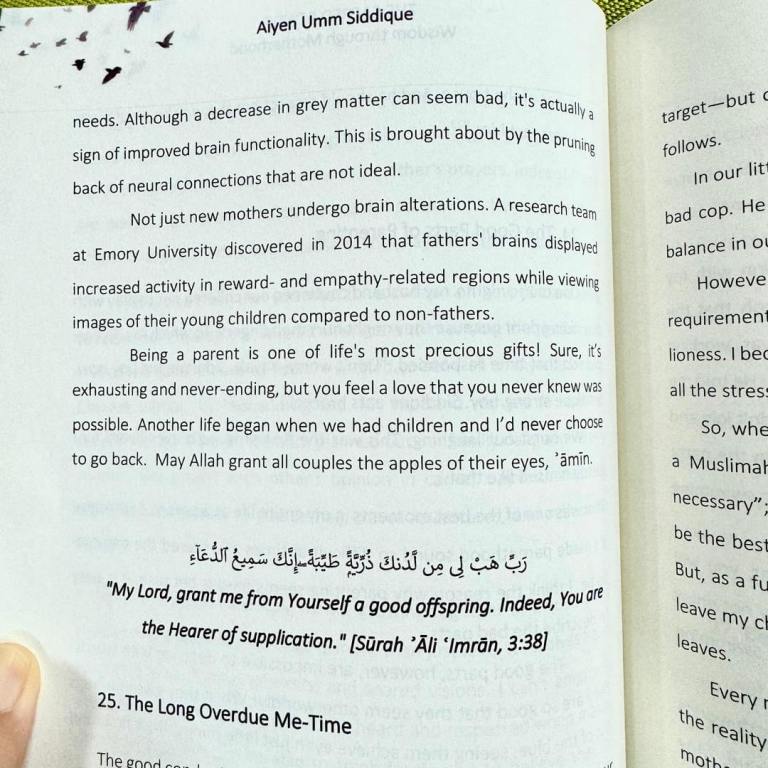 Aiyen Umm Siddique
needs. Although a decrease in grey matter can seem bad, it's actually a
sign of improved brain functionality. This is brought about by the pruning
back of neural connections that are not ideal.
Not just new mothers undergo brain alterations. A research team
at Emory University discovered in 2014 that fathers' brains displayed
increased activity in reward- and empathy-related regions while viewing
images of their young children compared to non-fathers.
Being a parent is one of life's most precious gifts! Sure, it's
exhausting and never-ending, but you feel a love that you never knew was
possible. Another life began when we had children and I'd never choose
to go back. May Allah grant all couples the apples of their eyes, ʾāmīn.
رَبِّ هَبْ لِى مِن لَّدُنكَ ذُرِّيَّةً طَيِّبَةً ۖ إِنَّكَ سَمِيعُ ٱلدُّعَآءِ
"My Lord, grant me from Yourself a good offspring. Indeed, You are
the Hearer of supplication." [Sūrah ʾĀli ʿImrān, 3:38]
25. The Long Overdue Me-Time
The good
target—but
follows.
In our
bad cop. He
balance in
requirement
lioness. I
all the
So,
a Muslimah
necessary";
be the best
But, as a
leave my
leaves.
Every
the reality